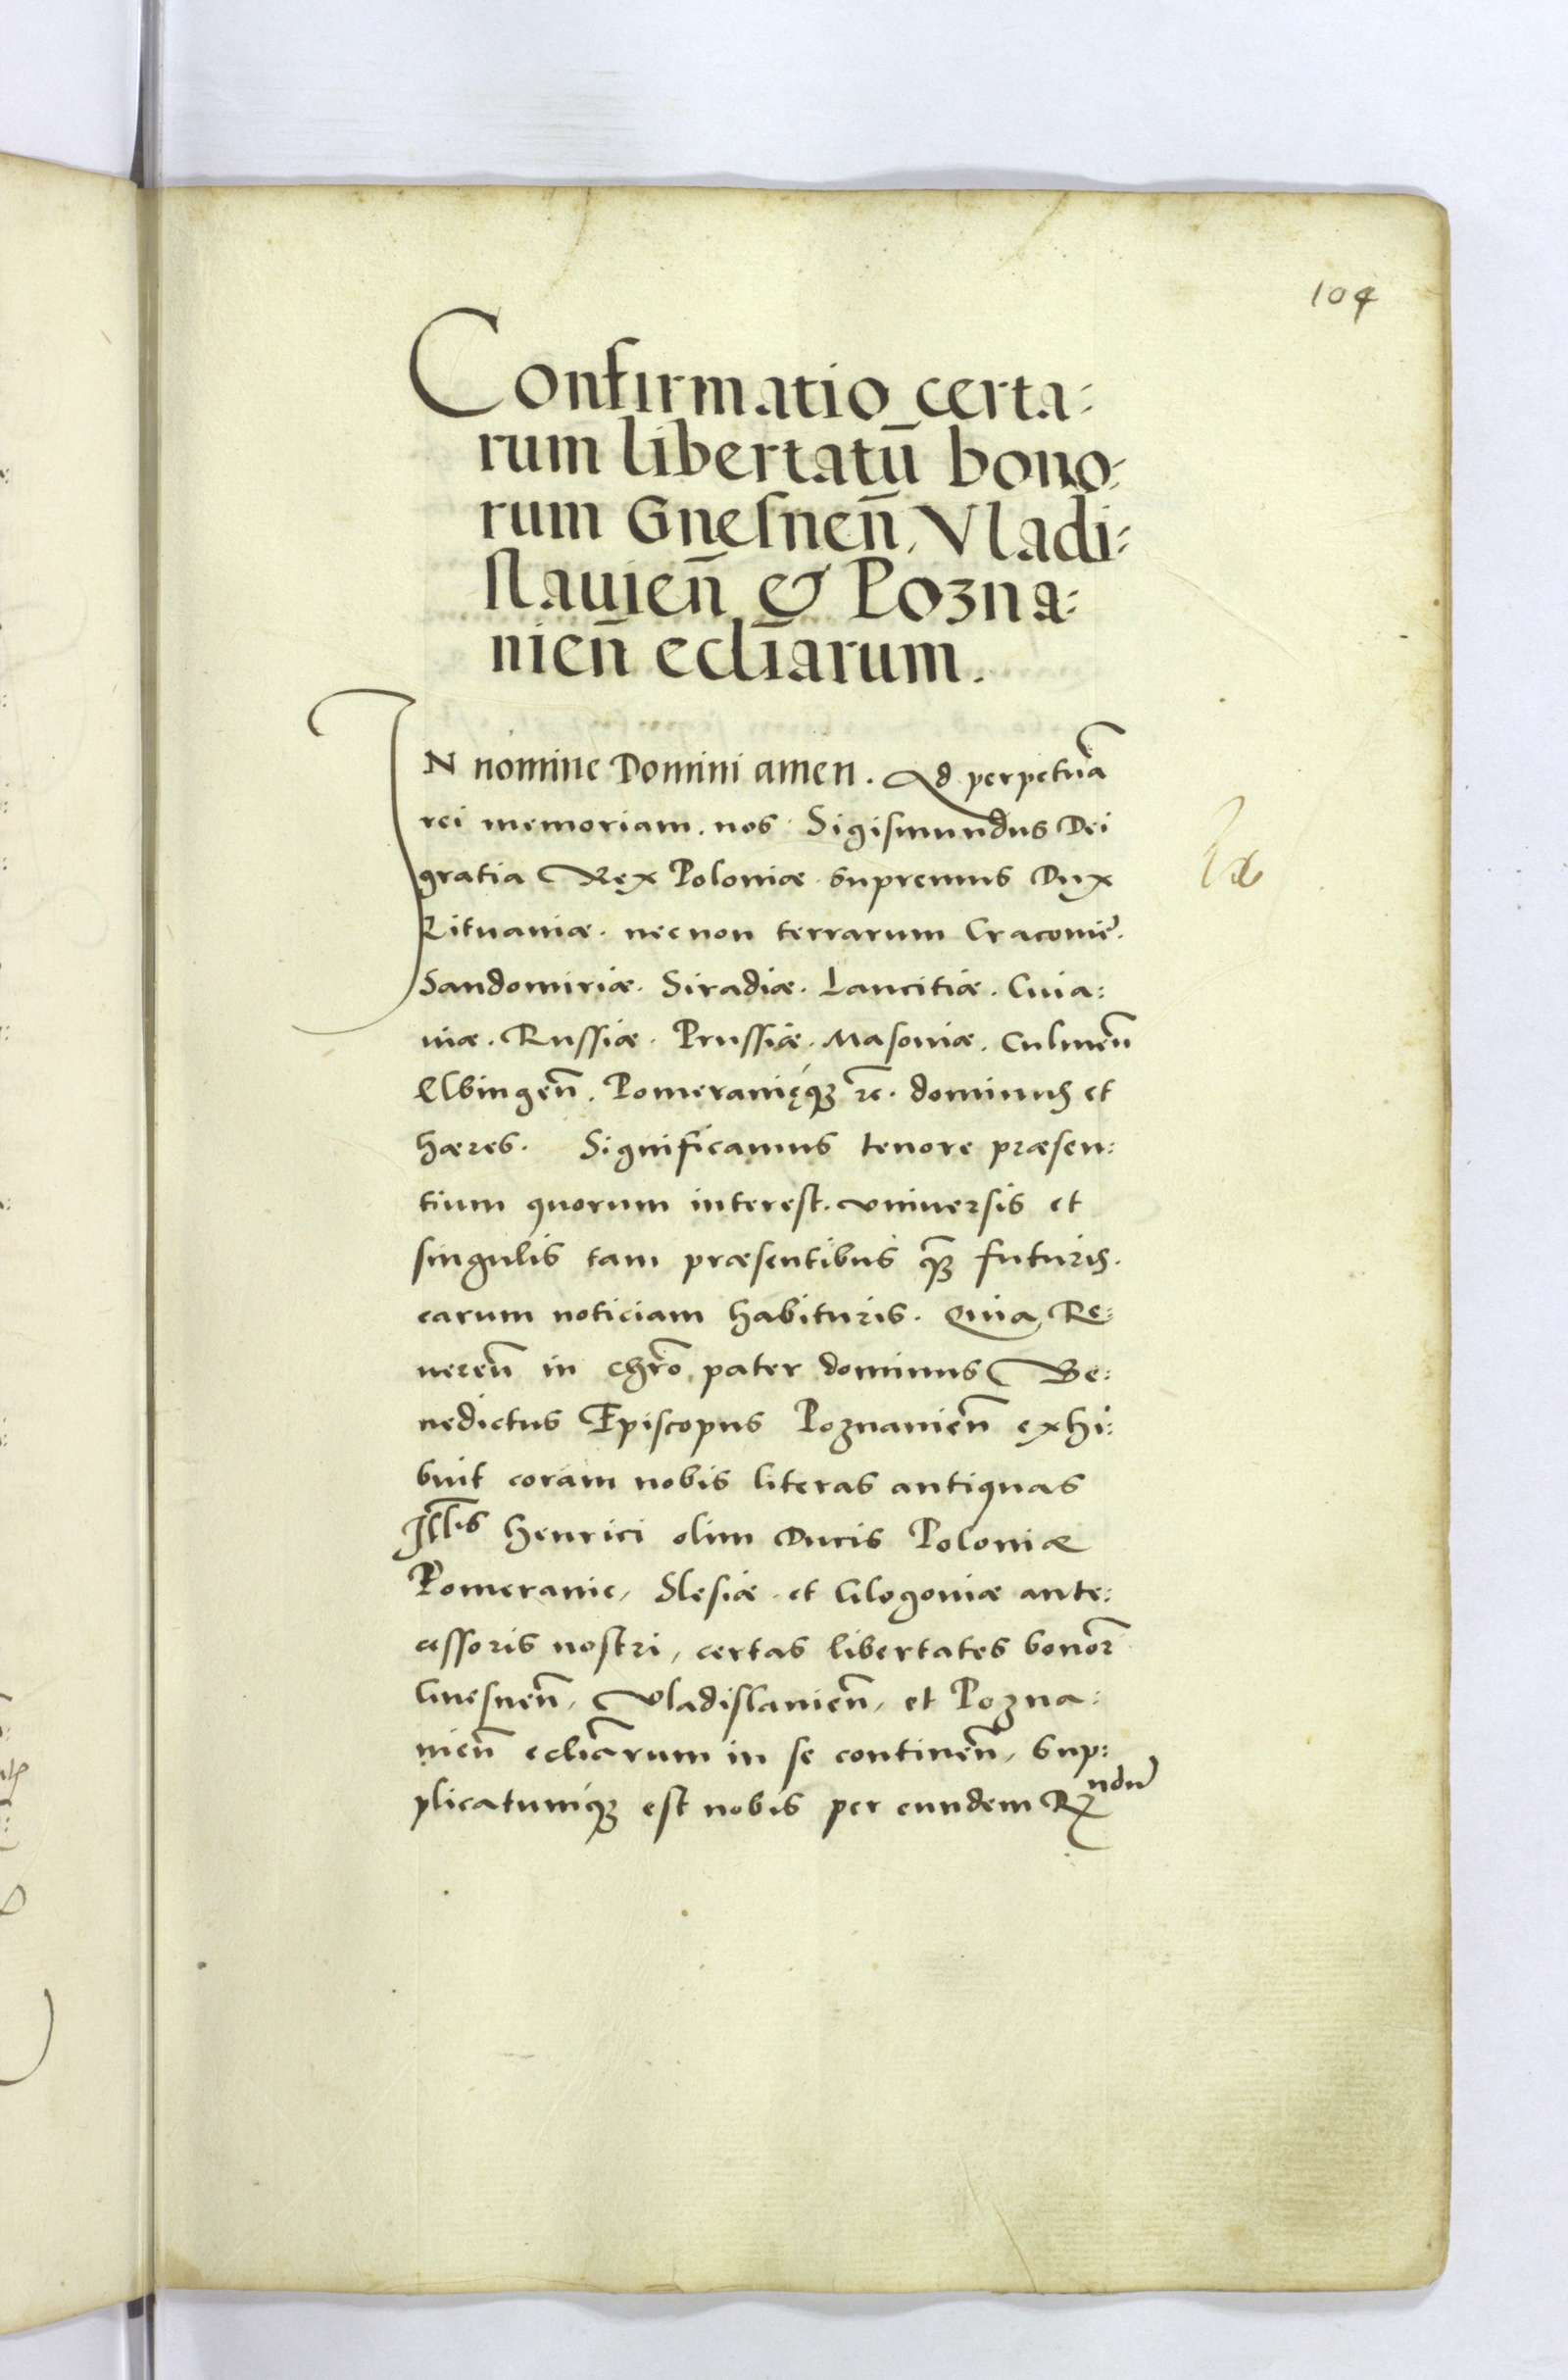 104
Confirmatio certa:
rum libertatū bono:
rum Gnesnen̄, Vladi:
slauien̄ & Pozna:
nien̄ eccl̄iarum.
IN nomine Domini amen. Ad perpetuā
rei memoriam. nos Sigismundus Dei
gratia Rex Poloniæ supremus Dux
Lituaniæ. necnon terrarum Cracouiē.
Sandomiriæ. Siradiæ. Lancitiæ. Cuia:
uiæ. Russiæ. Prussiæ. Masouiæ. Culmen̄
Elbingen̄. Pomeranięqꝫ ⁊c̄. dominus et
hæres. Significamus tenore præsen:
tium quorum interest. vniuersis et
singulis tam præsentibus q̄ꝫ futuris.
earum noticiam habituris. Quia Re:
ueren̄ in Chr̄o pater dominus Be:
nedictus Episcopus Poznanien̄ exhi:
buit coram nobis literas antiquas
Ill̄is Henrici olim Ducis Poloniæ
Pomeranie, Slesiæ et Glogouiæ ante:
cessoris nostri, certas libertates bonoꝝ
Gnesnen̄, Vladislauien̄, et Pozna:
nien̄ eccl̄iarum in se continen̄, Sup:
plicatumqꝫ est nobis per eundem Rndū